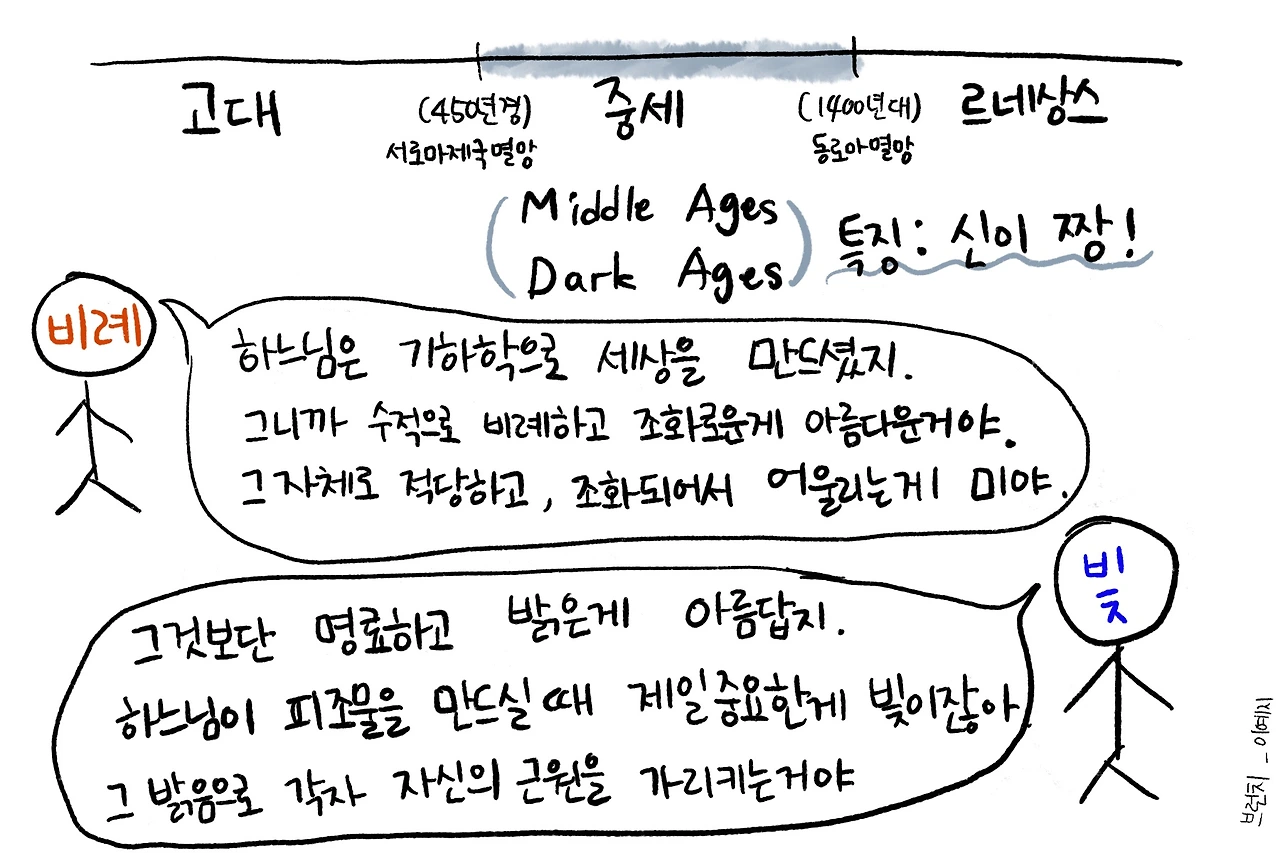 고대
(450년경)
서로마제국멸망
중세
(1400년대)
동로마멸망
르네상스
(Middle Ages
Dark Ages)
특징: 신이 짱!
비례
하느님은 기하학으로 세상을 만드셨지.
그니까 수적으로 비례하고 조화로운게 아름다운거야.
그자체로 적당하고, 조화되어서 어울리는게 미야.
빛
그것보단 명료하고 밝은게 아름답지.
하느님이 피조물을 만드실때 제일중요한게 빛이잖아
그 밝음으로 각자 자신의 근원을 가리키는거야
브런치 - 이예지